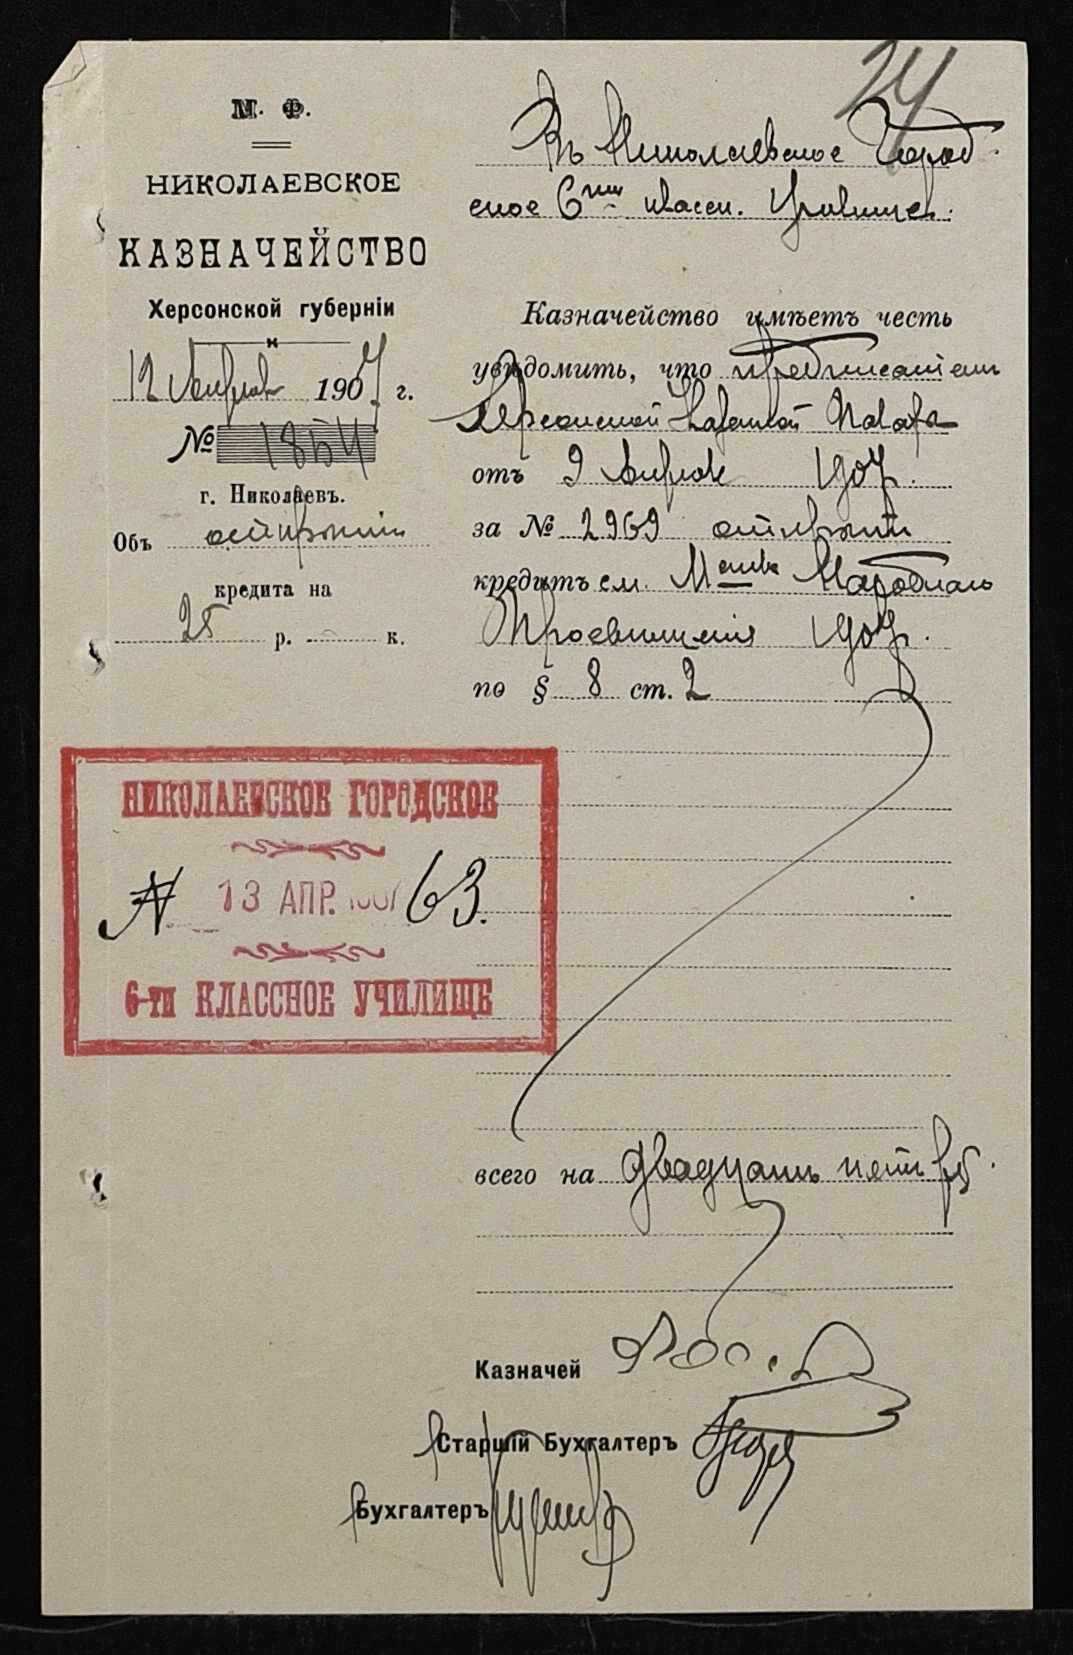 24
М. Ф.
НИКОЛАЕВСКОЕ
КАЗНАЧЕЙСТВО
Херсонской губерніи
12 Апреля 1907 г.
№ 1854
г. Николаевъ.
Объ открытіи
кредита на
25 р. — к.
Въ Николаевское Город-
ское 6ти класси. Училище.
Казначейство имѣетъ честь
увѣдомить, что предписаніемъ
Херсонской Казенной Палаты
отъ 9 Апреля 1907 г.
за № 2969 открытъ
кредитъ см. М-ства Народнаго
Просвѣщенія 1907 г.
по § 8 ст. 2
НИКОЛАЕВСКОЕ ГОРОДСКОЕ
№ 13 АПР. 1907 63.
6-ти КЛАССНОЕ УЧИЛИЩЕ
всего на двадцать пять руб.
Казначей
Старшій Бухгалтеръ
Бухгалтеръ